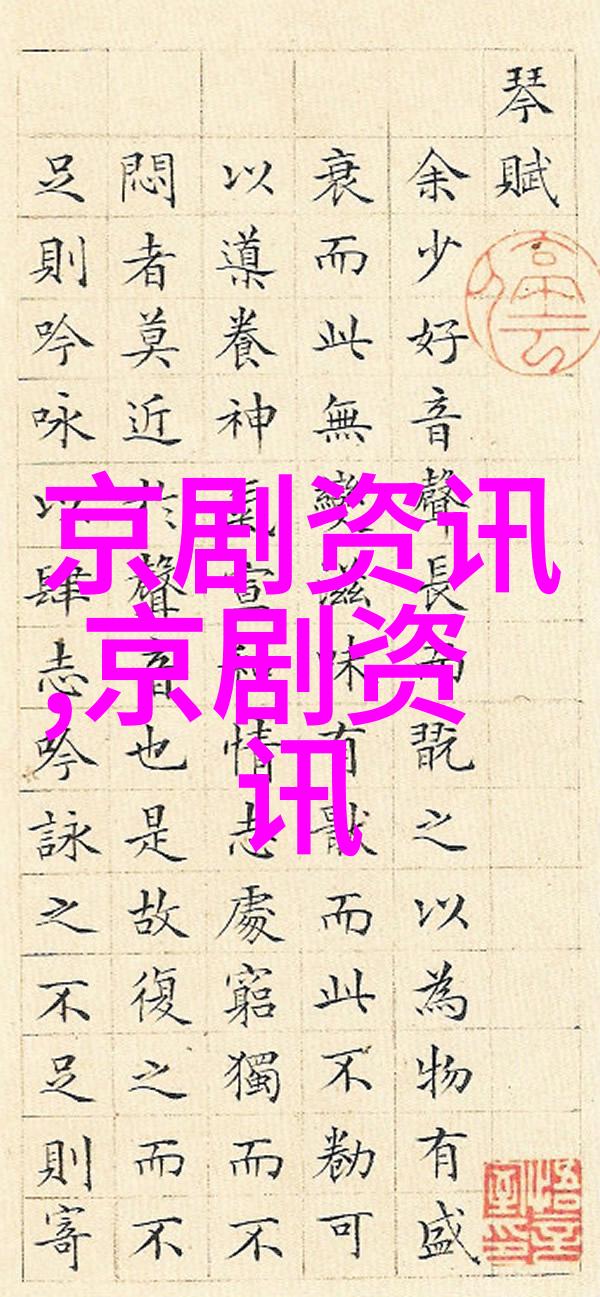 琴賦
余少好音聲長而翫之以為物有盛
衰而此無變滋味有猒而此不勌可
以導養神氣宣和情志處窮獨而不
悶者莫近於聲音也是故復之而不
足則吟咏以肆志吟詠之不足則寄
停云
悟言室印
京剧资讯
,京剧资
讯